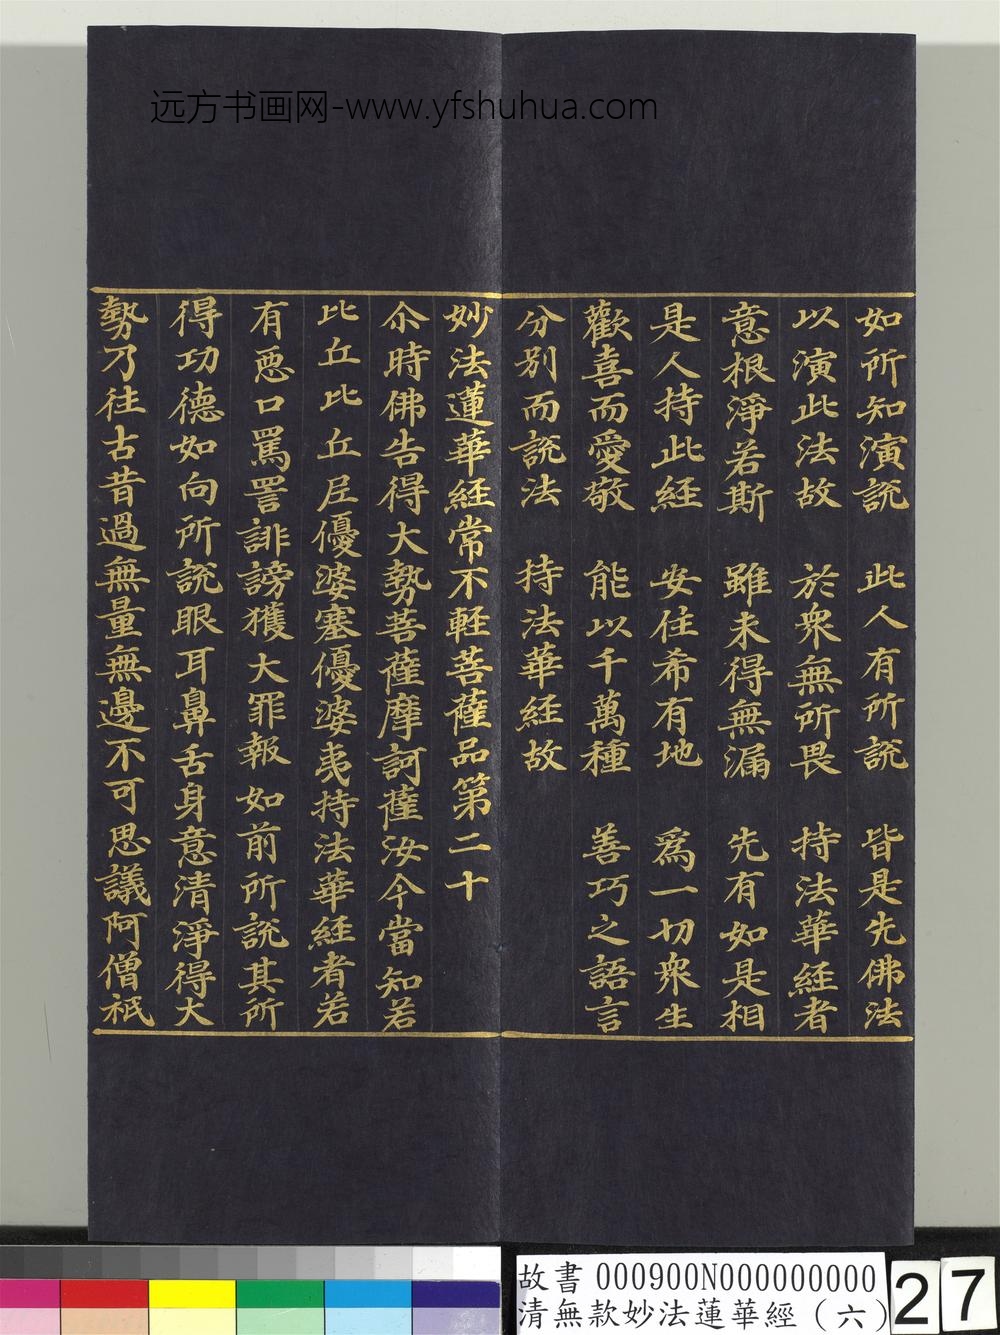 远方书画网-www.yfshuhua.com
如所知演説　此人有所説　皆是先佛法
以演此法故　於衆無所畏　持法華經者
意根淨若斯　雖未得無漏　先有如是相
是人持此經　安住希有地　爲一切衆生
歡喜而愛敬　能以千萬種　善巧之語言
分别而説法　持法華經故
妙法蓮華經常不輕菩薩品第二十
尒時佛告得大勢菩薩摩訶薩汝今當知若
比丘比丘尼優婆塞優婆夷持法華經者若
有惡口罵詈誹謗獲大罪報如前所説其所
得功德如向所説眼耳鼻舌身意清淨得大
勢乃往古昔過無量無邊不可思議阿僧祇
故書 000900N000000000
清無款妙法蓮華經（六）
27